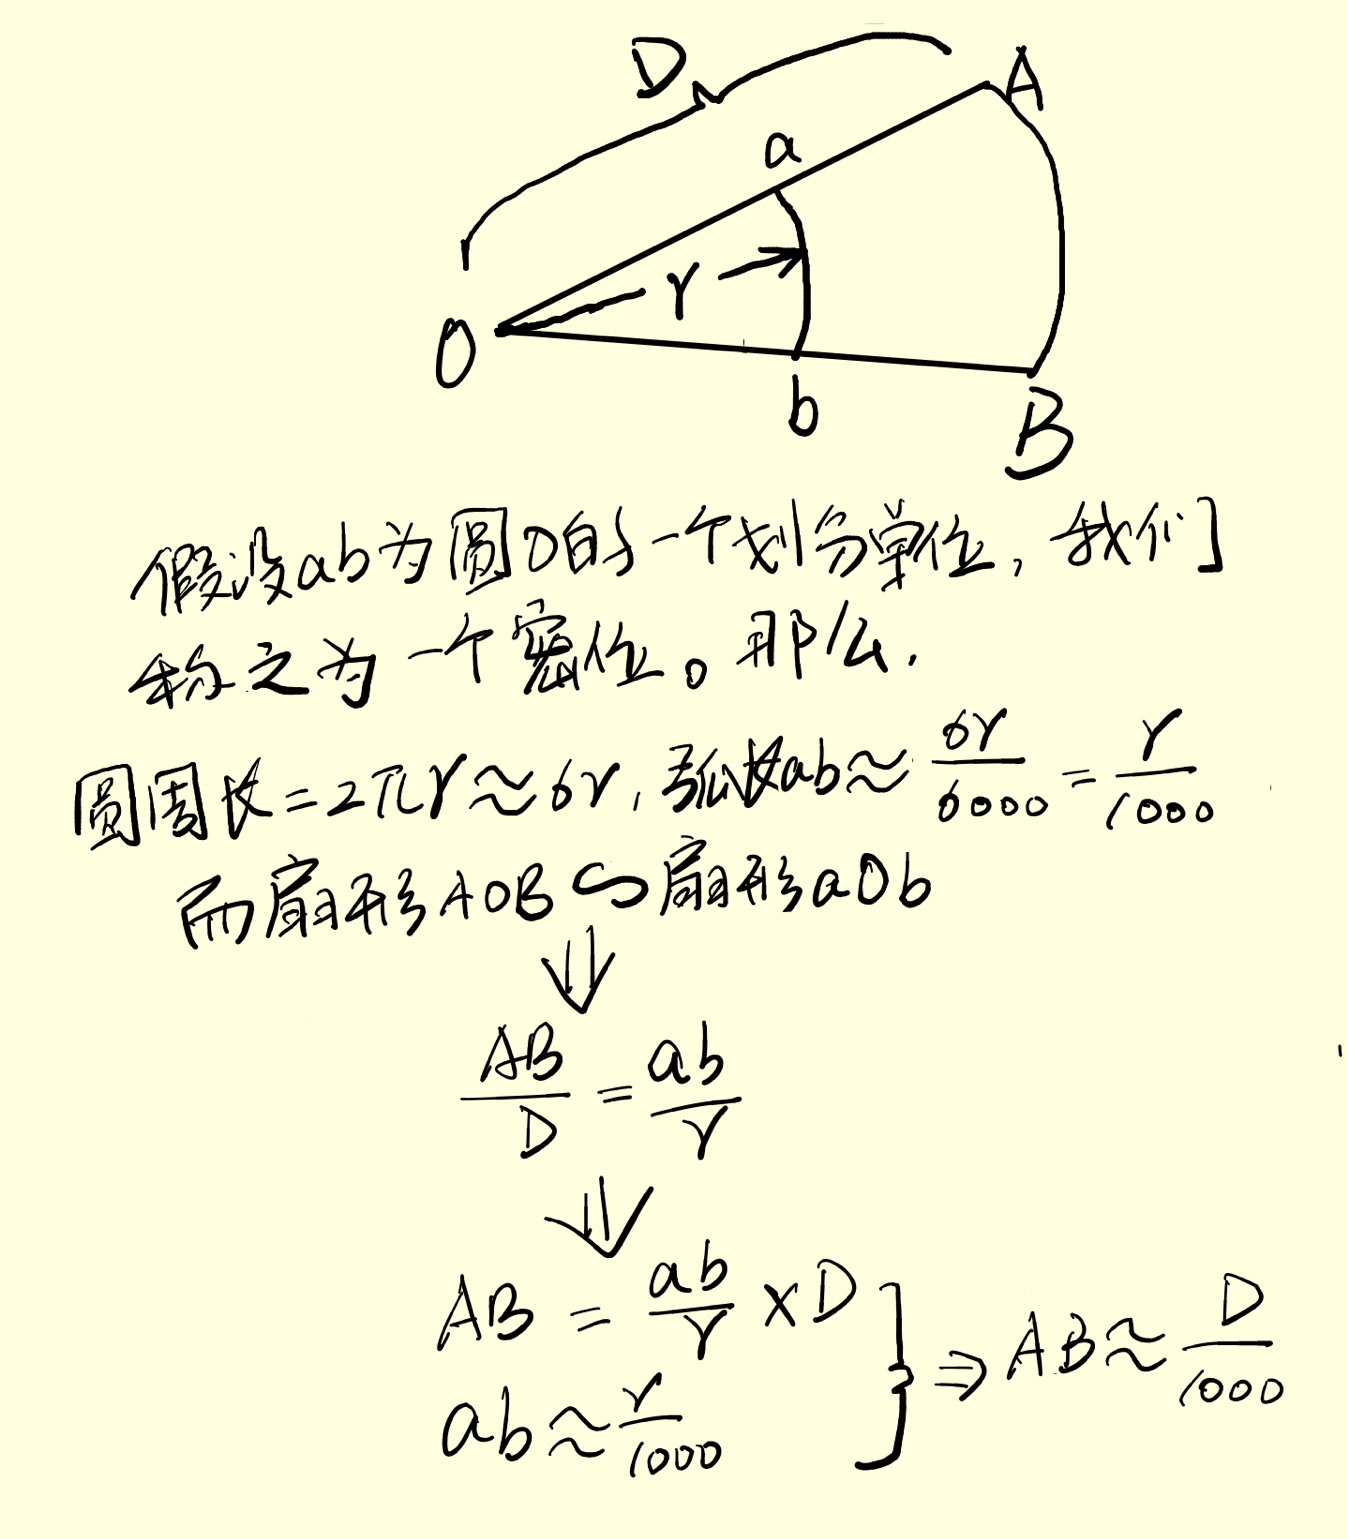 D
A
a
r
O
b
B
假设ab为圆O的一个划分单位，我们
称之为一个密位。那么，
圆周长=2πr≈6r，弧长ab≈6r/6000=r/1000
而扇形AOB∽扇形aOb
⇓
AB/D=ab/r
⇓
AB=ab/r×D
ab≈r/1000
⇒AB≈D/1000